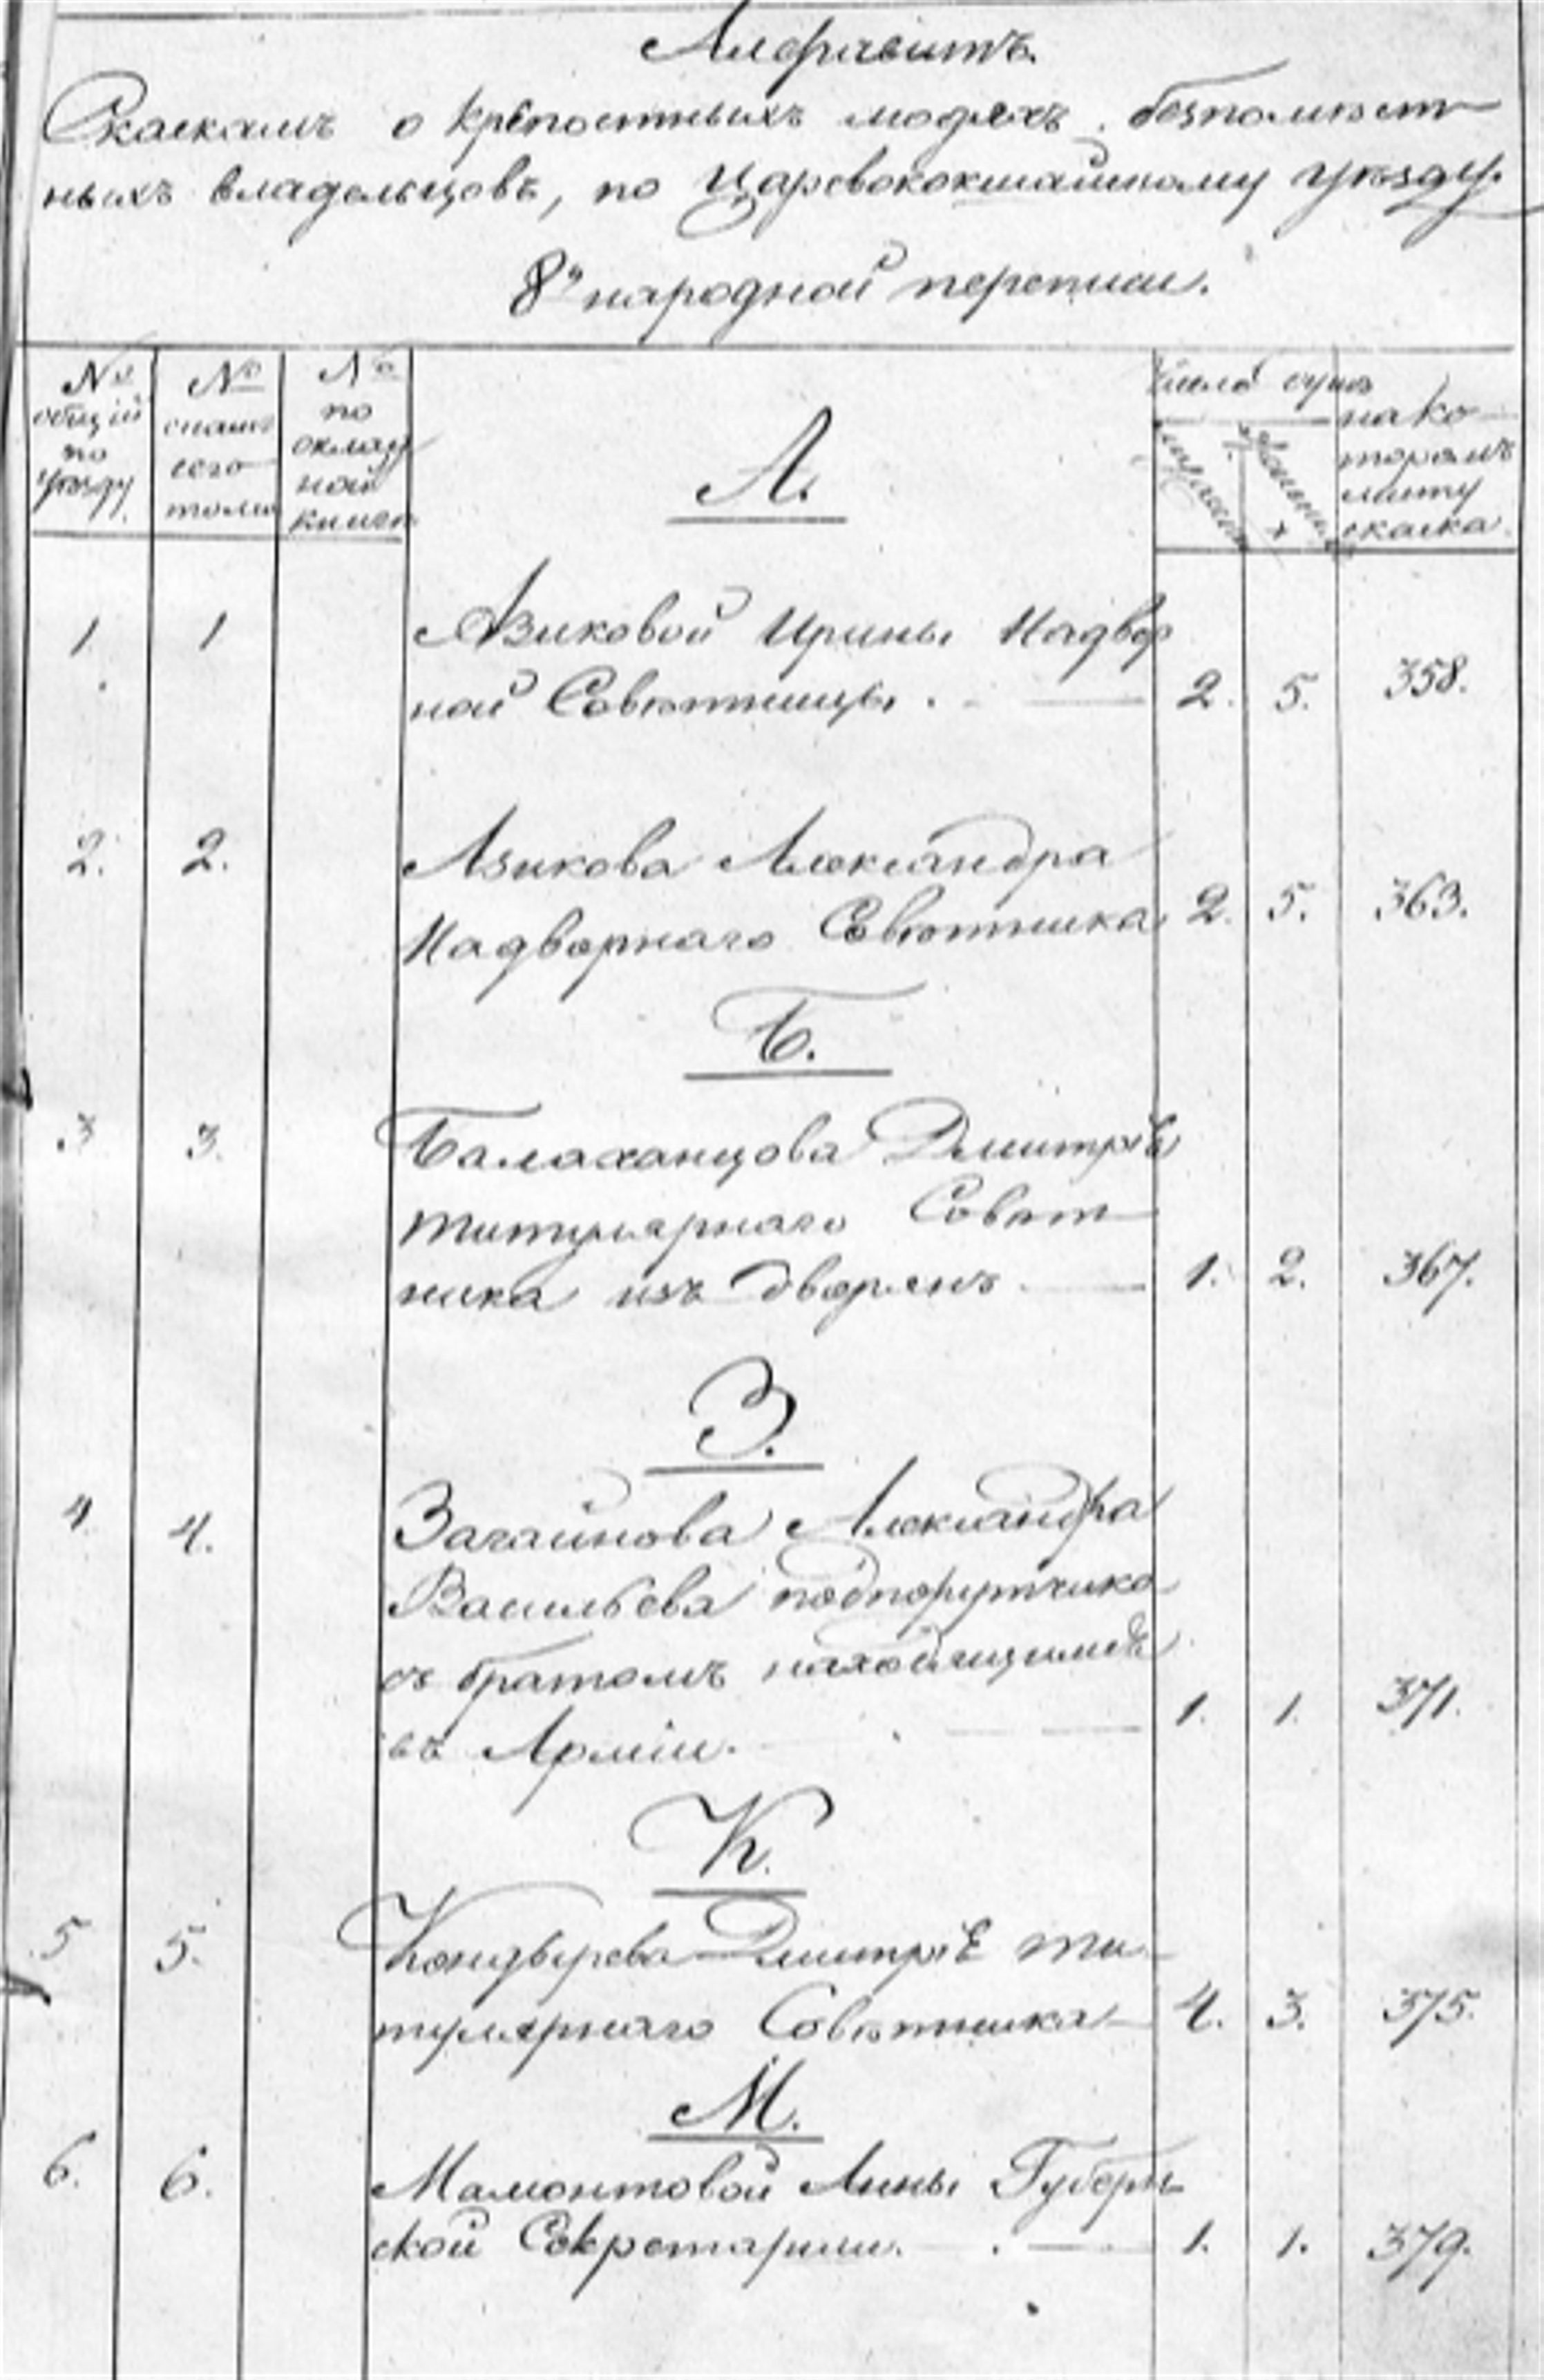 Алфавитъ
Скаскамъ о крѣпостныхъ людяхъ безпомѣст
ныхъ владельцовъ, по Царевококшайскому уѣзду.
8й народной переписи.
№ общій по уѣзду.
№ сего тома
№ по оклад ной книги
А.
Число душъ
мужеска
женска
на ко
торомъ
листу
скаска.
1 1 Азиковой Ирины Надвор
ной Совѣтницы. 2. 5. 358.
2. 2. Азикова Александра
Надворнаго Совѣтника 2. 5. 363.
Б.
3 3. Балаханцова Дмитрія
титулярнаго Совѣт
ника изъ дворянъ 1. 2. 367.
З.
4 4. Загайнова Александра
Васильева подпорутчика
съ братомъ находящимся
въ Арміи. 1. 1. 371.
К.
5 5. Кондырева Дмитрія ти
тулярнаго Совѣтника 4. 3. 375.
М.
6. 6. Мамонтовой Анны Губерн
ской Секретарши. 1. 1. 379.